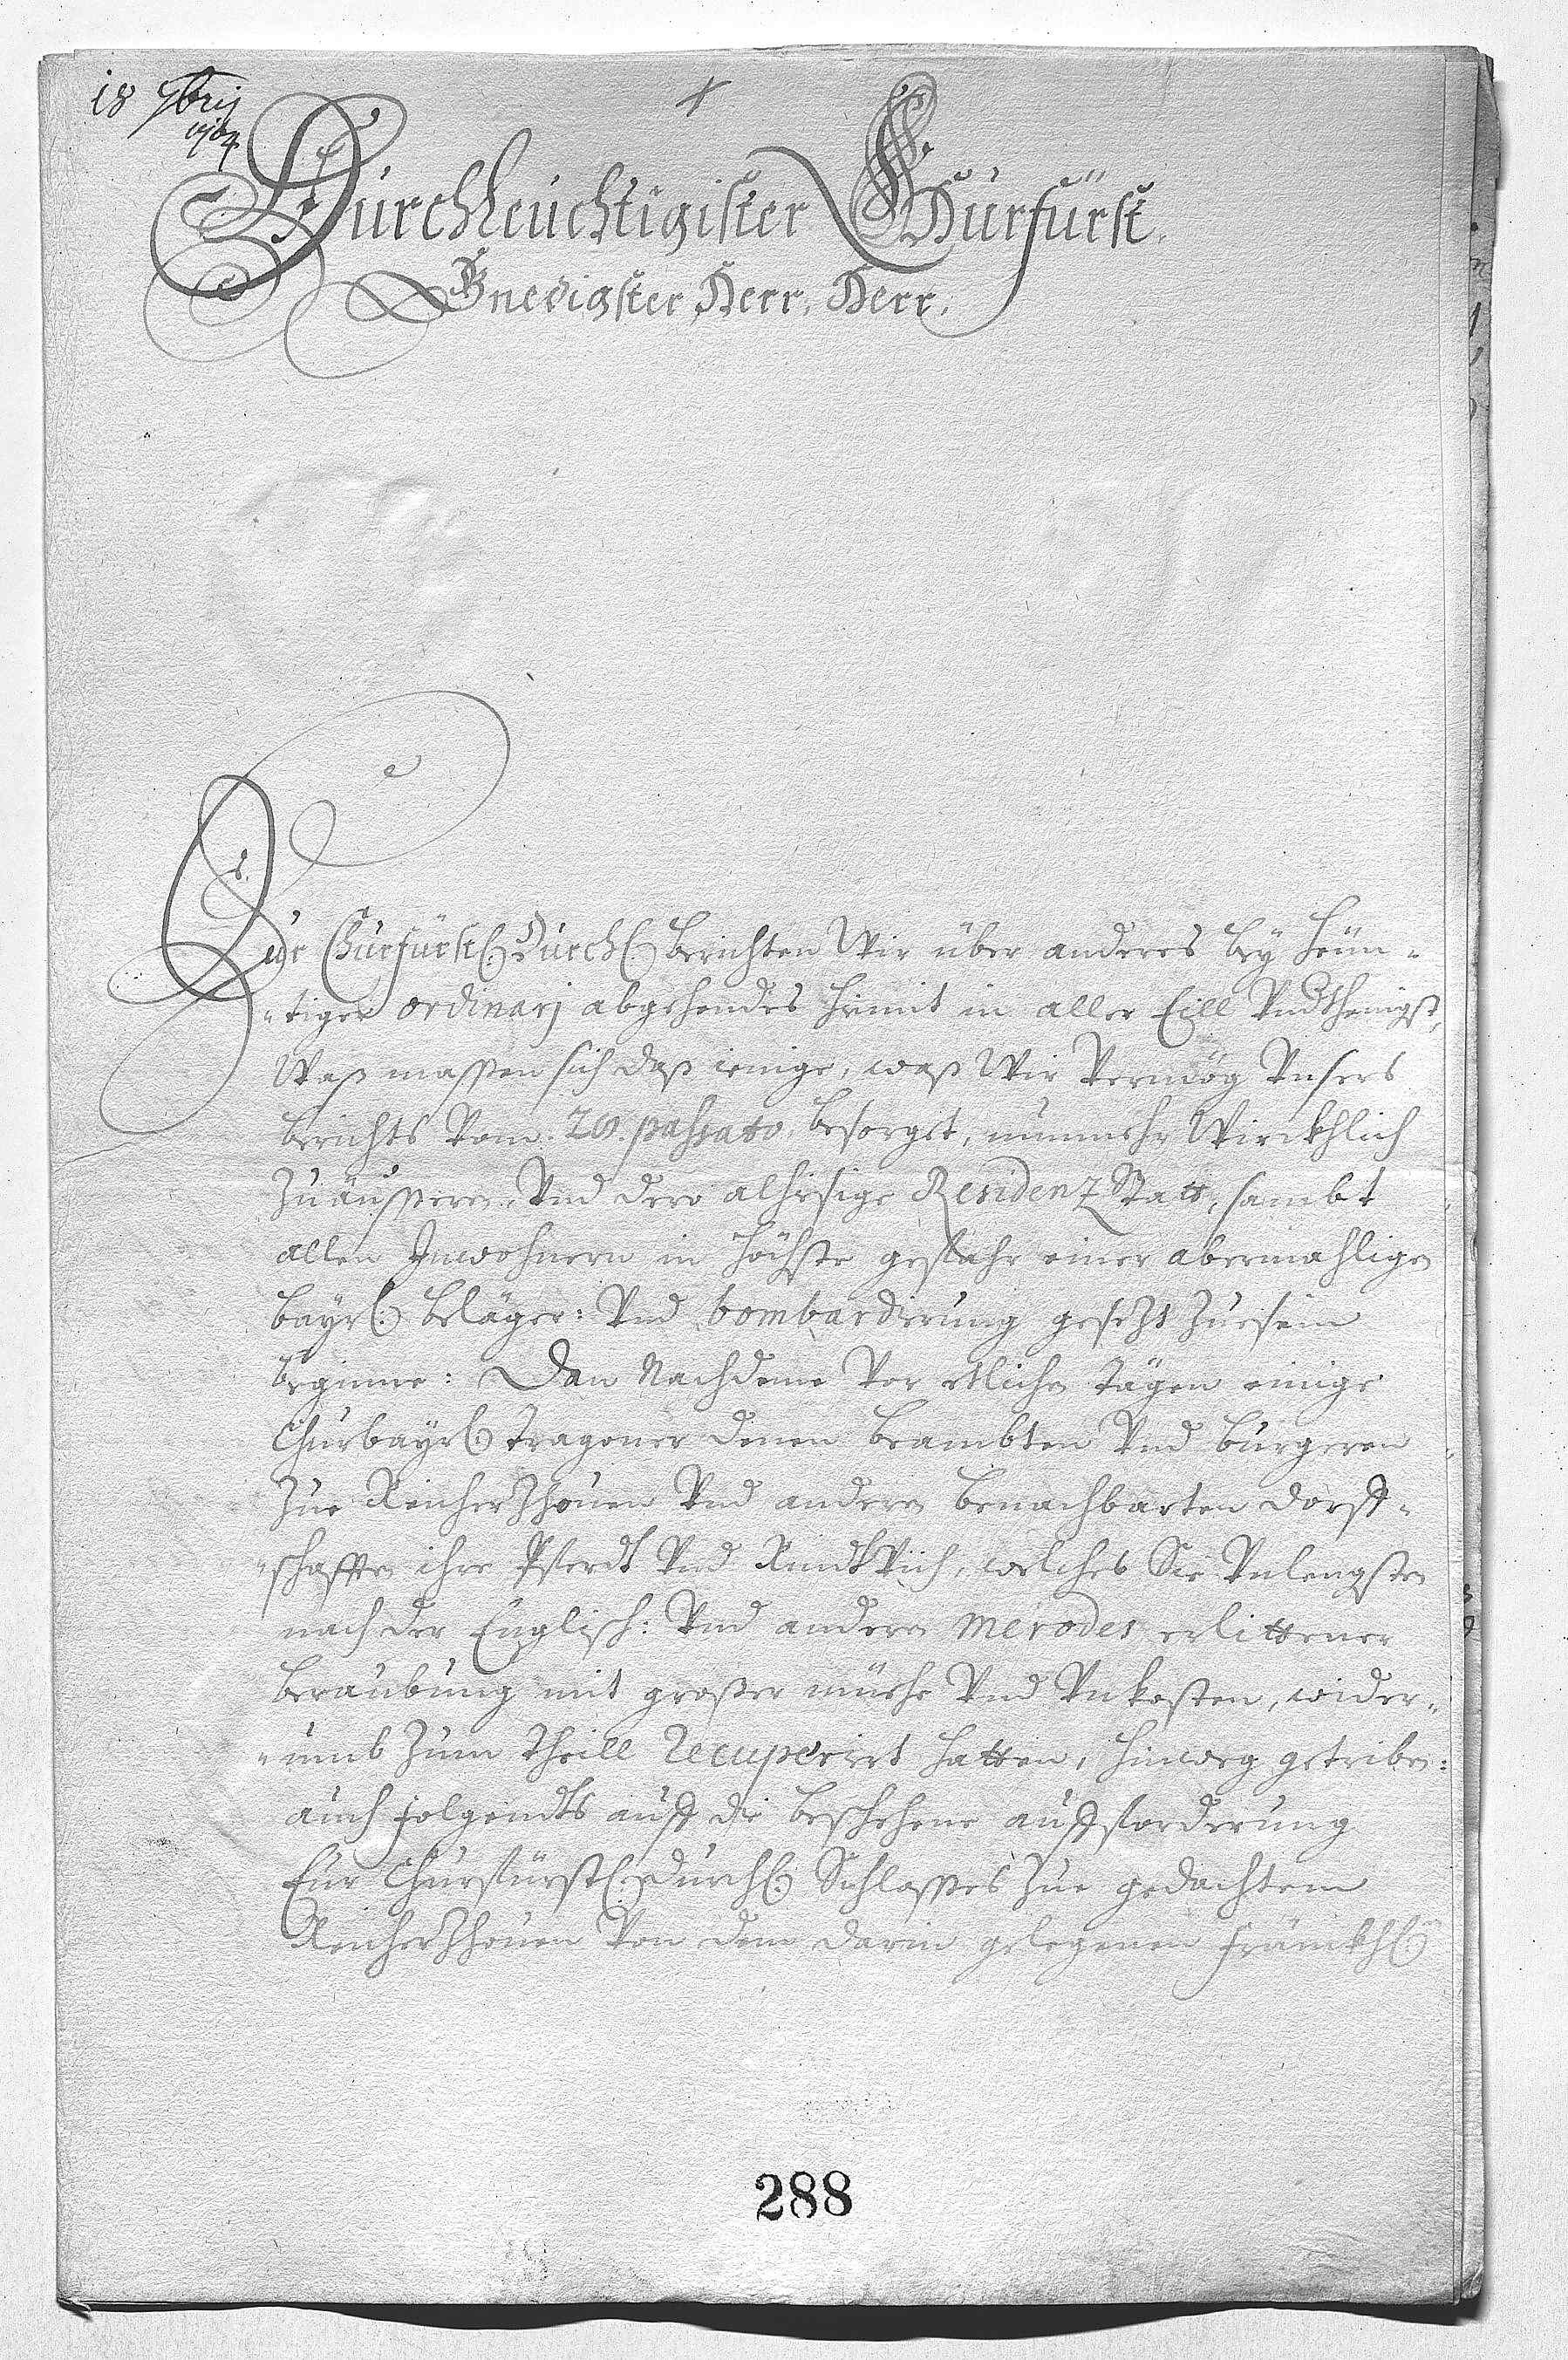 18 7bris
1704
Durchleuchtigister Churfürst.
Gnedigster Herr, Herr.
Eur Churfürstl: Durchl: berichten Wir über anderes bey heün-
-tiger ordinarj abgehendes hiemit in aller Eill Vndthenigst,
Waß massen sich daß ienige, waß Wir Vermög Vnsers
berichts Vom 20. passato besorget, nunmehr Wirckhlich
Zu äusseren, Vnd dero alhiesige Residenz Statt, sambt
allen Inwohnern in höchste gefahr einer abermahligen
bayrl: beläger: Vnd bombardierung gesezt zuesein
beginne: Dan Nachdeme Vor etlichen tägen einige
Churbayrl: Tragoner denen beambten Vnd burgeren
Zue Reicherzhouen Vnd anderen benachbarten dorff-
-schafften ihre Pferdt Vnd Rindt Viech, welches Sie Vnlengsten
nach der Englisch: Vnd anderen merodes erlittener
beraubung mit grosser müehe Vnd Vnkosten, wider-
-umb zum theill recuperirt hatten, hinweg getriben:
auch folgendts auff die beschehene aufforderung
Eur Churfürstl: Durchl: Schlosses Zue gedachtem
Reicherzhouen Von dem darin gelegenen fränckhl:
288